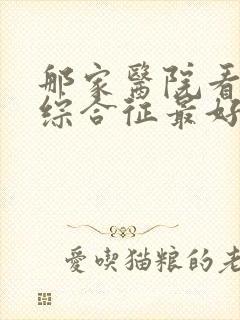 那家醫院看
综合征最好
愛喫猫粮的老